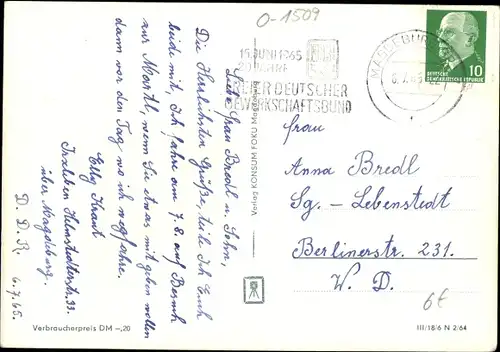 0-1509
15. JUNI 1965
20 JAHRE
FREIER DEUTSCHER
GEWERKSCHAFTSBUND
MAGDEBURG
DEUTSCHE
DEMOKRATISCHE REPUBLIK
10
Liebe Frau Bredl u. Sohn,
Die Herzlichsten Grüße, teile Ich Euch
beide mit, Ich fahre am 7.8. auf Besuch
zur Martl, wenn Sie etwas mit geben wollen
dann vor den Tag wo ich wegfahre.
Elly Kraut
Irxleben Helmstedterstr. 33.
über Magdeburg.
D. D. R. 6.7.65.
Verlag KONSUM FOKU Magdeburg
Frau
Anna Bredl
Sg. - Lebenstedt
Berlinerstr. 231.
W. D.
6€
Verbraucherpreis DM -,20
III/18/6 N 2/64